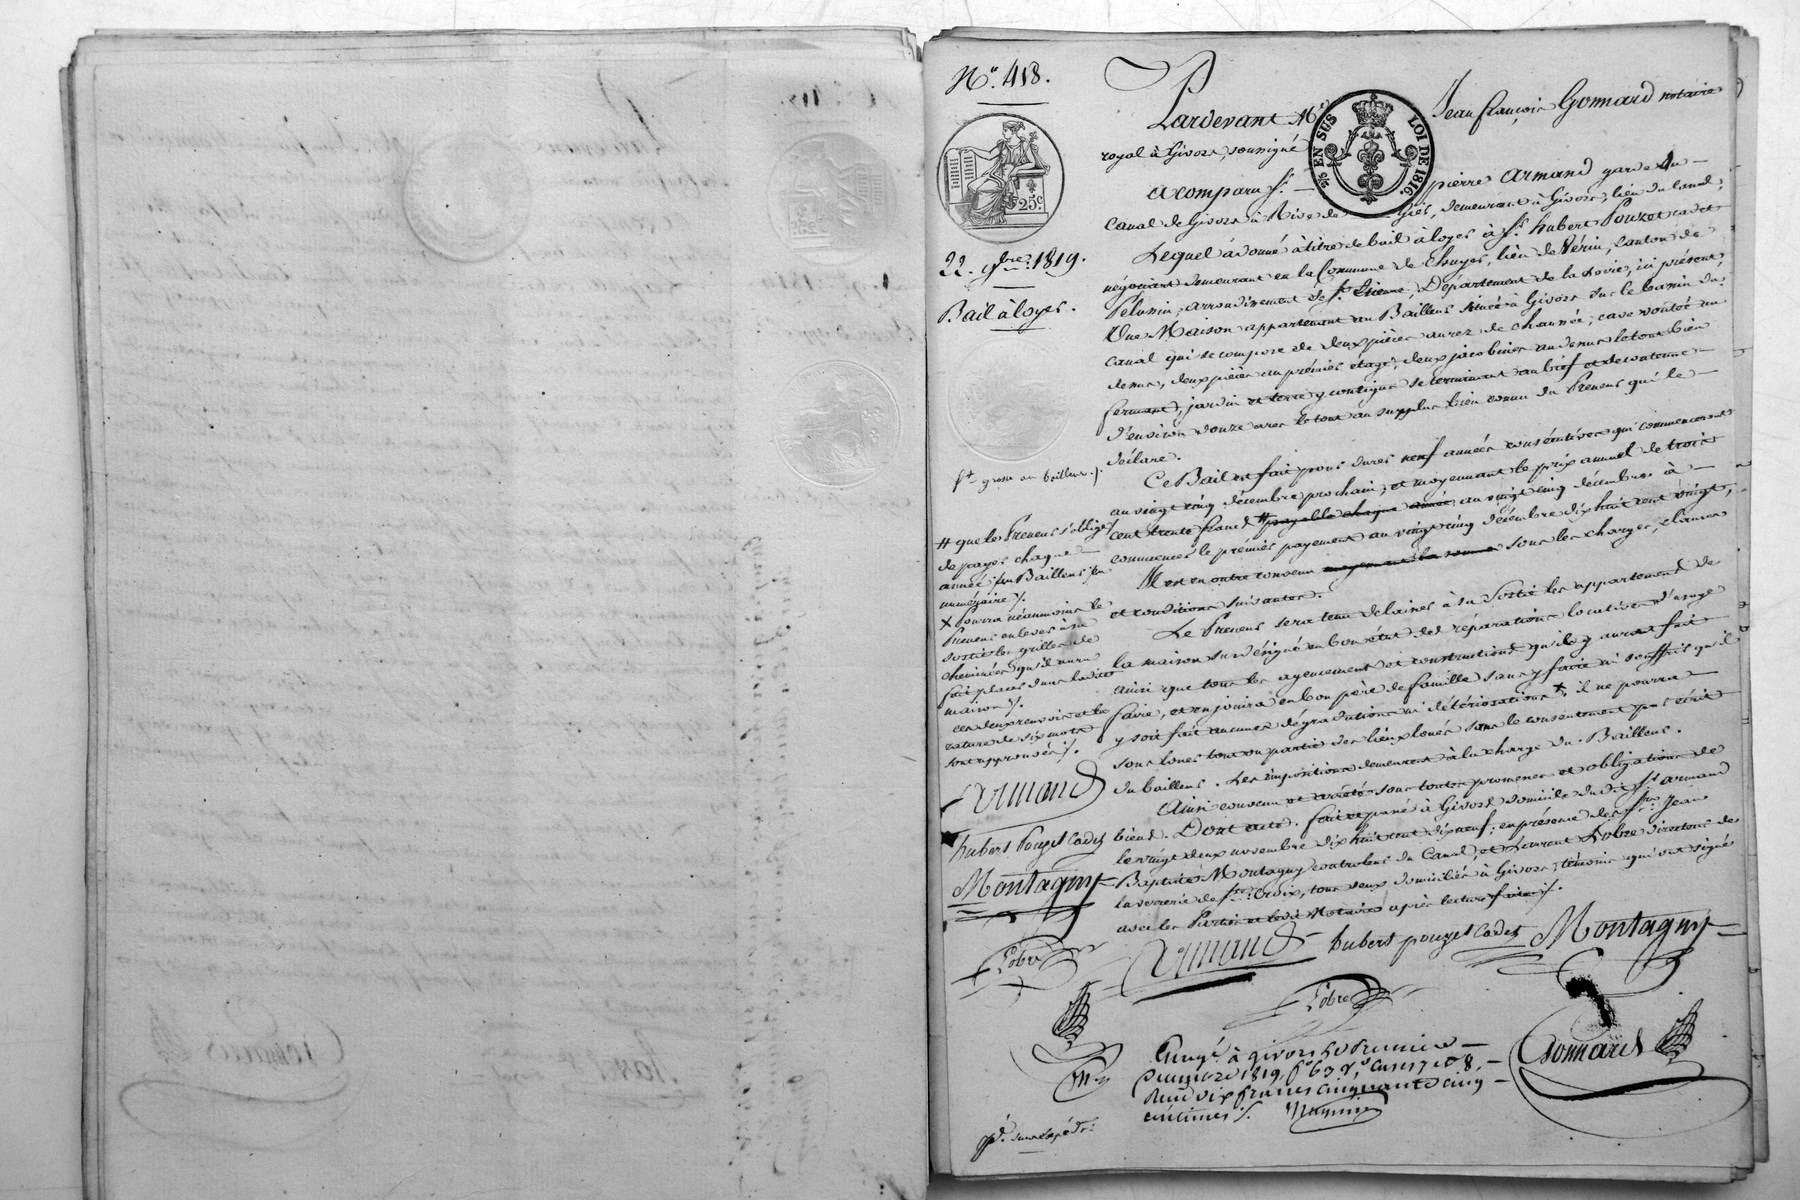 N.° 418.
25.c
22. 9bre 1819.
Bail à loyer.
fte grosse au bailleur ./.
# que le Preneur s'oblige
de payer chaque
année au Bailleur en
numéraire ./.
X Pourra néanmoins le
Preneur enlever à sa
sortie les grilles de
cheminées qu'il aura
fait placer dans ladite
maison ./.
ces deux renvois et la
rature de six mots
sont approuvés ./.
Armand
hubert Pouzet Cadet
Montagny
Lobre
EN SUS LOI DE 1816.
Pardevant Me Jean françois Gonnard notaire
royal à Givors, soussigné
a comparu Sr. pierre Armand garde du
Canal de Givors à Rive de Gier, demeurant à Givors, lieu du Canal,
Lequel a donné à titre de bail à loyer à Sr. hubert Pouzet cadet
négociant demeurant en la Commune de Chuyer, lieu de Vérin, Canton de
Pelussin, arrondissement de St. Etienne, Département de la Loire, ici présent
Une Maison appartenant au Bailleur située à Givors sur le bassin du
Canal qui se compose de deux pièces au rez de chaussée, cave voutée au
dessus, deux pièces au premier étage, deux jacobines au dessus le tout bien
fermant, jardin et terre y contigus se terminant au bief et de contenue
d'environ douze ares le tout au surplus bien connu du Preneur qui le
déclare.
Ce Bail est fait pour dures neuf années consécutives qui commenceront
au vingt cinq décembre prochain, et moyennant le prix annuel de trois
cent trente francs # payable chaque année au vingt cinq décembre à
commencer le premier payement au vingt cinq décembre dix huit cent vingt,
Il est en outre convenu moyennant la somme sous les charges, clauses
et conditions suivantes.
Le Preneur sera tenu de laisser à sa Sortie les appartements de
la maison sus désignée en bon état des réparations locatives d'usage
ainsi que tous les agencements et constructions qu'il y aurait fait
faire, et en jouira en bon père de famille sans y faire ni souffrir qu'il
y soit fait aucunes dégradations ni détériorations X, il ne pourra
sous louer tout ou partie des lieux loués sans le consentement par écrit
du bailleur. Les impositions demeurent à la charge du Bailleur.
Ainsi convenu et arrêté sous toutes promesses et obligations de
biens. Dont acte. fait et passé à Givors domicile du dit Sr. armand
le vingt deux novembre dix huit cent dix neuf, en présence des Srs. Jean
Baptiste Montagny controleur du Canal, et Laurent Lobre directeur de
la verrerie de Ste. Croix, tous deux domiciliés à Givors, témoins qui ont signé
avec les Parties et ledit Notaire après lecture faite ./.
Armand hubert pouzet Cadet Montagny
Lobre
Gonnard
Enregé à givors le premier
décembre 1819, fo 63 vo cases 7 et 8.
francs cinquante cinq
centimes ./.